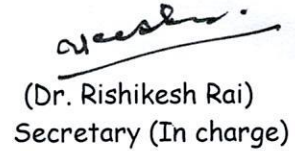 (Dr. Rishikesh Rai)
Secretary (In charge)